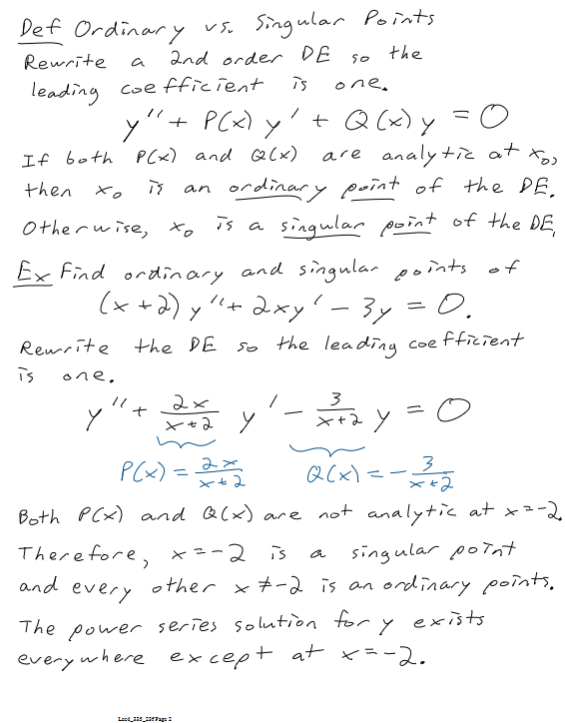 Def Ordinary vs. Singular Points
Rewrite a 2nd order DE so the
leading coefficient is one.
y'' + P(x) y' + Q(x) y = 0
If both P(x) and Q(x) are analytic at x₀,
then x₀ is an ordinary point of the DE.
Otherwise, x₀ is a singular point of the DE.
Ex Find ordinary and singular points of
(x+2) y'' + 2xy' - 3y = 0.
Rewrite the DE so the leading coefficient
is one.
y'' + 2x/(x+2) y' - 3/(x+2) y = 0
P(x) = 2x/(x+2) Q(x) = - 3/(x+2)
Both P(x) and Q(x) are not analytic at x=-2.
Therefore, x=-2 is a singular point
and every other x≠-2 is an ordinary points.
The power series solution for y exists
everywhere except at x=-2.